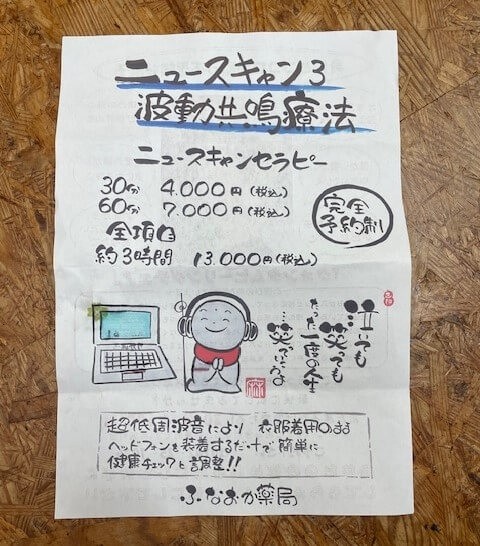 ニュースキャン3
波動共鳴療法
ニュースキャンセラピー
30分 4.000円(税込)
60分 7.000円(税込)
全項目
約3時間 13.000円(税込)
完全
予約制
泣いても
笑っても
たった一度の人生
…笑っていこうよ
超低周波音により 衣服着用のまま
ヘッドフォンを装着するだけで簡単に
健康チェックと調整!!
ふなおか薬局